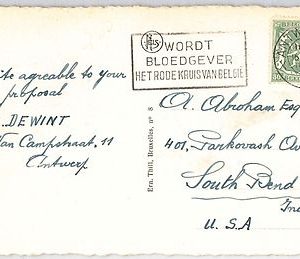 WORDT
BLOEDGEVER
HET RODE KRUIS VAN BELGIE
ite agreable to your
proposal
. DEWINT
Van Campstraat, 11
Antwerp
Ern. Thill, Bruxelles, n° 8
A. Abraham Esq
401, Parkovash Av
South Bend
In
U.S.A